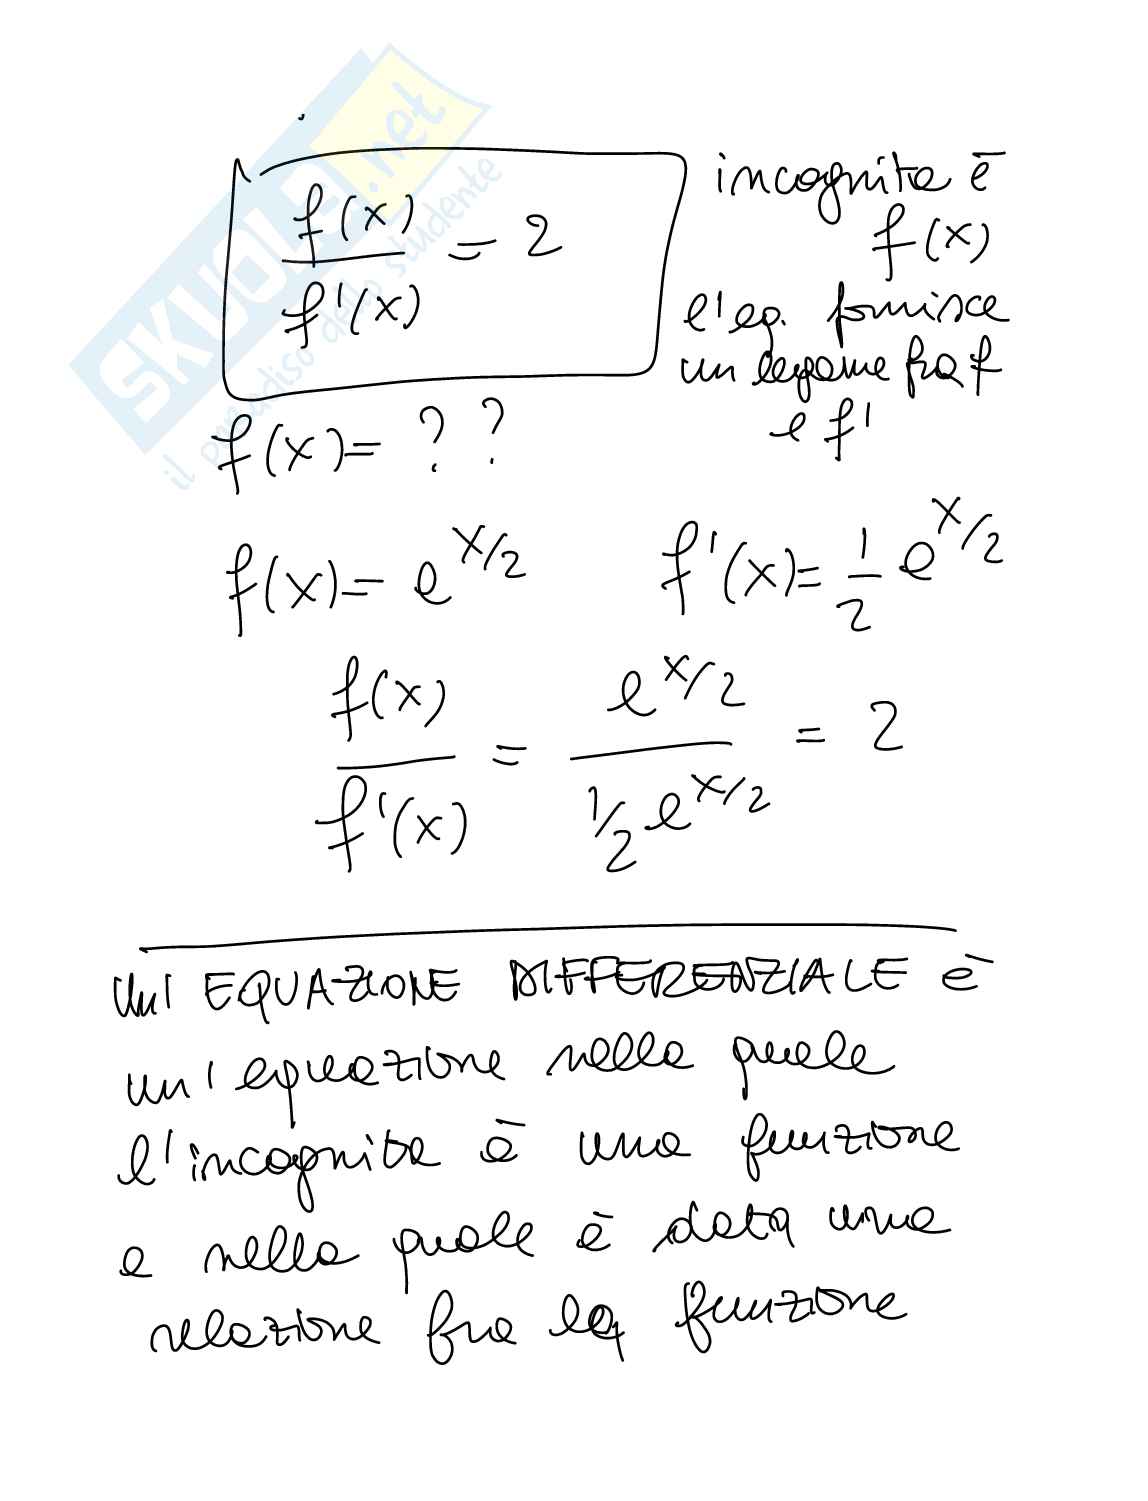 SKUOLA.net
il paradiso dello studente
f(x)/f'(x) = 2
incognita è
f(x)
l'eq. fornisce
un legame fra f
e f'
f(x) = ? ?
f(x) = e^x/2    f'(x) = 1/2 e^x/2
f(x)/f'(x) = e^x/2 / 1/2 e^x/2 = 2
Un' EQUAZIONE DIFFERENZIALE è
un' equazione nella quale
l'incognita è una funzione
e nella quale è data una
relazione fra la funzione